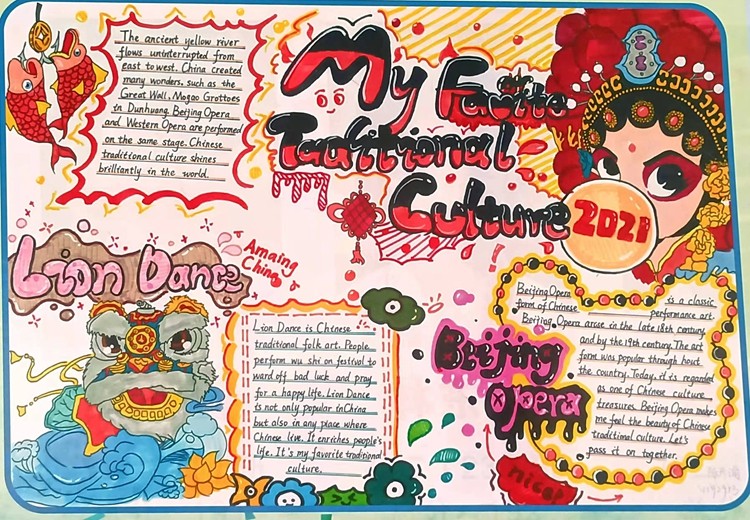 The ancient yellow river
flows uninterrupted from
east to west. China created
many wonders, such as the
Great Wall, Mogao Grottoes
in Dunhuang. Beijing Opera
and Western Opera are performed
on the same stage. Chinese
traditional culture shines
brilliantly in the world.
My Favite
Taditional
Culture
2021
Lion Dance
Amaing
China
Lion Dance is Chinese
traditional folk art. People
perform wu shi on festival to
ward off bad luck and pray
for a happy life. Lion Dance
is not only popular in China
but also in any place where
Chinese live. It enriches people's
life. It's my favorite traditional
culture.
Beijing
opera
Beijing Opera is a classic
form of Chinese performance art.
Beijing Opera arose in the late 18th century
and by the 19th century. The art
form was popular through hout
the country. Today, it is regarded
as one of Chinese culture
treasures. Beijing Opera makes
me feel the beauty of Chinese
traditional culture. Let's
pass it on together.
nice!